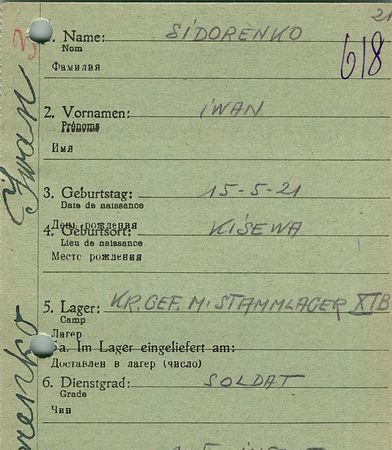 21
1. Name: SIDORENKO
Nom
Фамилия
618
2. Vornamen: IWAN
Prénoms
Имя
3. Geburtstag: 15-5-21
Date de naissance
День рождения
4. Geburtsort: KISEWA
Lieu de naissance
Место рождения
5. Lager: KR.GEF.M.STAMMLAGER XIB
Camp
Лагер
5a. Im Lager eingeliefert am:
Доставлен в лагер (число)
6. Dienstgrad: SOLDAT
Grade
Чин
Iwan
renko